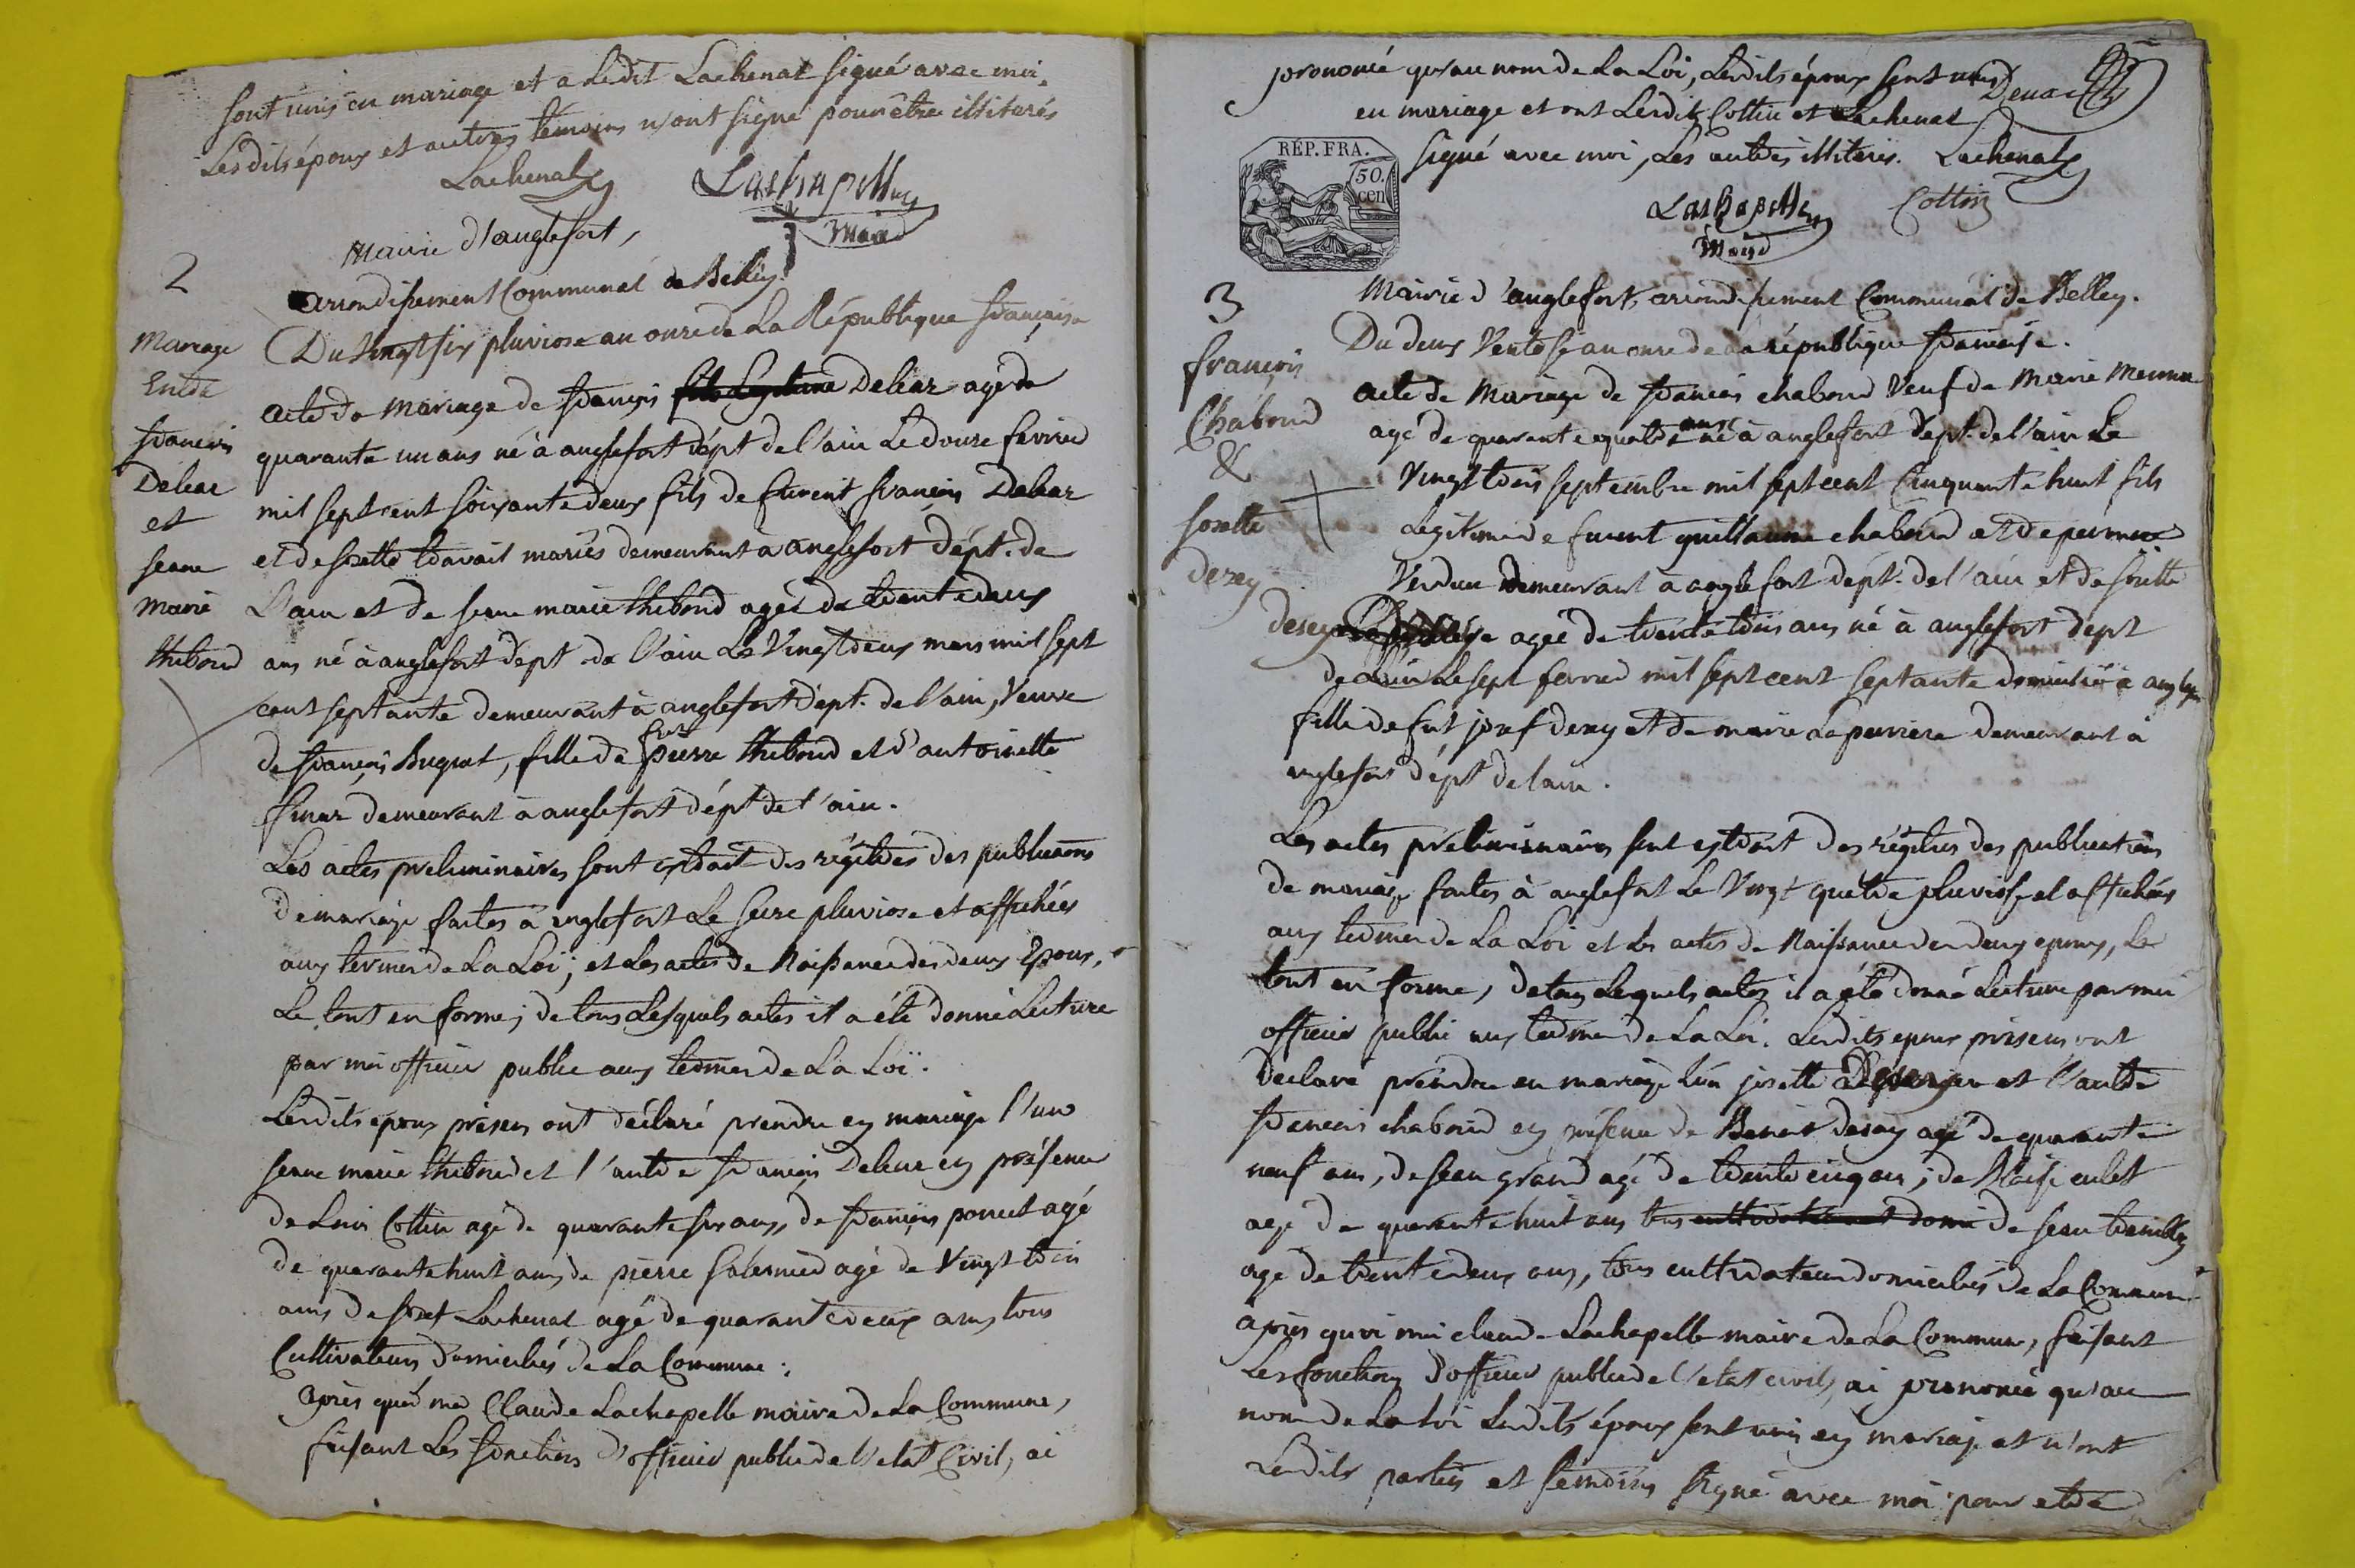 sont unis en mariage et a Ledit Lachenal signé avec moi.
Lesdits époux et autres témoins n'ont signé pour être illiterés
Lachenal Lachapelle
Maire
Mairie d'anglefort,
arrondissement Communal de Belley.
2
Mariage
Entre
francois
Deleaz
et
jeanne
marie
thiboud
Du Vingt six pluviose an onze de La République francaise
acte de Mariage de francois fils Legitime Deleaz agé de
quarante un ans né à anglefort dépt de l'ain Le douze fevrier
mil sept cent soixante deux fils de furent francois Deleaz
et de josette travail mariés demeurant à anglefort dépt. de
L'ain et de jeanne marie thiboud agée de trente deux
ans né à anglefort dépt de l'ain Le Vingt deux mars mil sept
cent septante demeurant à anglefort dépt. de l'ain, Veuve
de francois Buquet, fille de feu pierre thiboud et d'antoinette
demeurant à anglefort dépt de l'ain.
Les actes preliminaires sont extrait des régitres des publications
de mariage faites à anglefort Le seize pluviose et affichées
aux termes de La Loi; et Les actes de Naissance des deux Epoux,
Le tout en forme; de tous Lesquels actes il a été donné Lecture
par moi officier public aux termes de La Loi.
Lesdits epoux présens ont déclaré prendre en mariage l'un
jeanne marie thiboud et l'autre francois Deleaz en présence
de Louis Cottin agé de quarante six ans, de francois poncet agé
de quarante huit ans, de pierre agé de Vingt trois
ans de Lachenal agé de quarante deux ans tous
Cultivateurs domiciliés de La Commune;
après quoi moi Claude Lachapelle maire de La Commune,
faisant Les fonctions d'officier public de l'etat Civil, ai
prononcé qu'au nom de La Loi, Lesdits époux sont unis
en mariage et ont Lesdits Cottin et Lachenal
signé avec moi, Les autres illiterés. Lachenal
Lachapelle Cottin
Maire
RÉP. FRA.
50.
cen
3
francois
Chaboud
&
josette
dezey
Mairie d'anglefort, arrondissement Communal de Belley.
Du deux Ventose an onze de la république francaise.
acte de Mariage de francois chaboud Veuf de Marie
agé de quarante quatre ans né à anglefort dépt. de l'ain Le
Vingt trois septembre mil sept cent Cinquante huit fils
Légitime de furent guillaume chaboud et de
demeurant à anglefort dépt. de l'ain et de josette
dezey agée de trente trois ans né à anglefort dept
de L'ain Le sept fevrier mil sept cent septante domicilié à
fille de fut josef dezey et de marie Laperriere demeurant à
anglefort dépt de lain.
Les actes preliminaires sont extrait des régitres des publications
de mariage faites à anglefort Le Vingt quatre pluviose et affichées
aux termes de La Loi et les actes de Naissance des deux epoux, Le
tout en forme, de tous Lesquels actes il a été donné Lecture par moi
officier public aux termes de La Loi. Lesdits epoux présens ont
déclaré prendre en mariage l'un josette et l'autre
francois chaboud en présence de Benoit dezey agé de quarante
neuf ans, de jean grand agé de trente cinq ans; de Blaise culet
agé de quarante huit ans tous cultivateurs domi de jean
agé de trente deux ans, tous cultivateurs domiciliés de La Commune
après quoi moi claude Lachapelle maire de La Commune, faisant
Les fonctions d'officier public de l'etat civil, ai prononcé qu'au
nom de La Loi Lesdits époux sont unis en mariage et n'ont
Lesdits parties et témoins signé avec moi pour etre